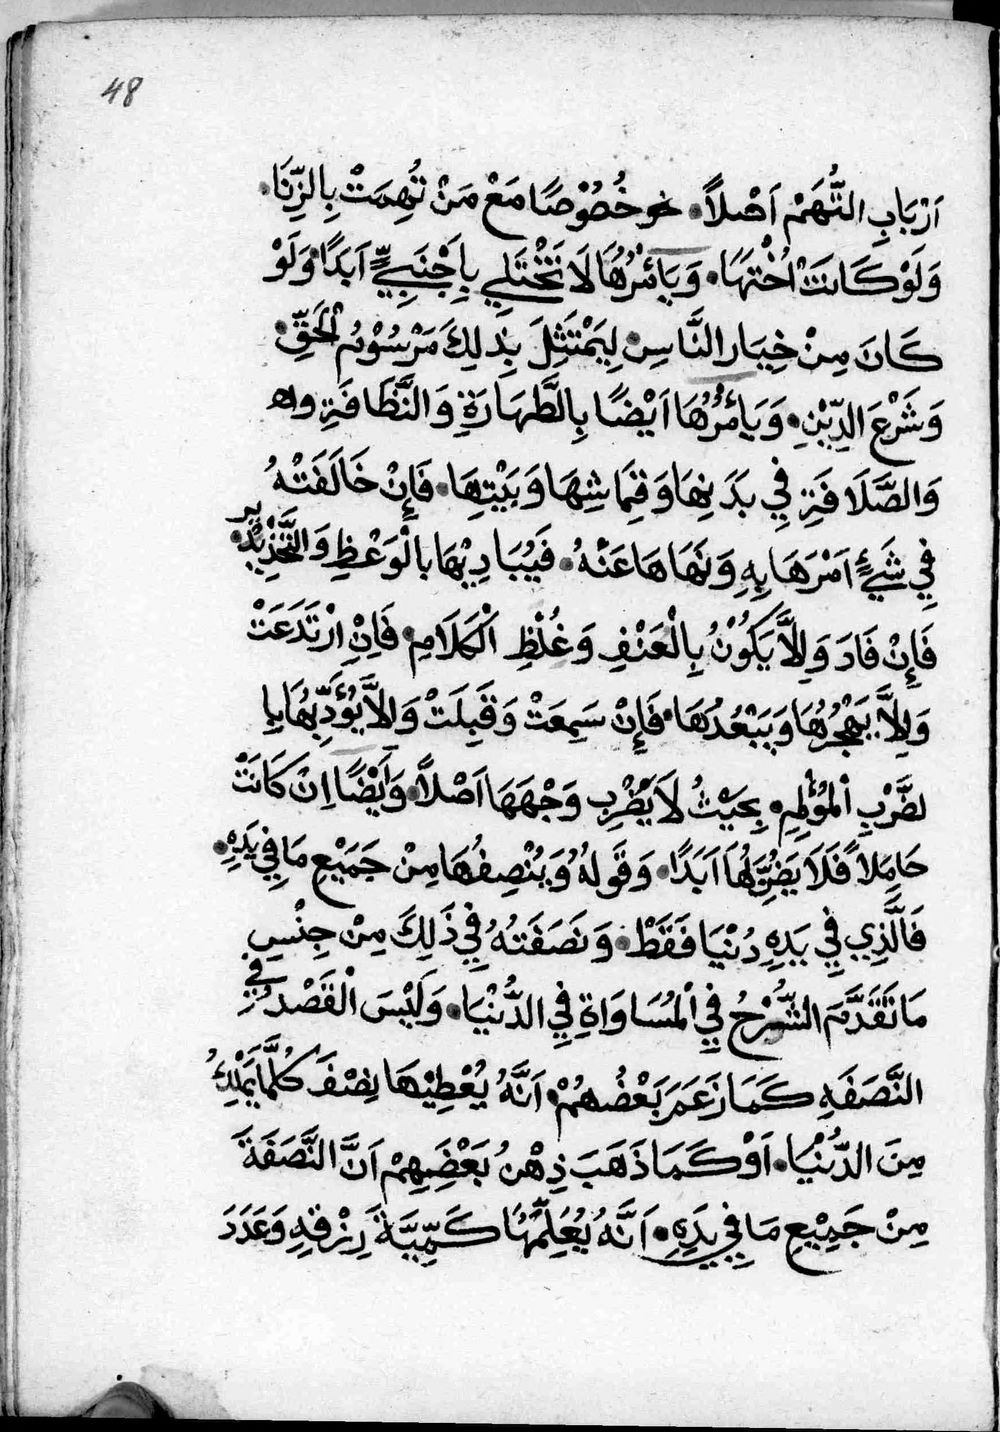 48
اَرْبَابِ التُّهَمْ اَصْلاً. خُصُوْصًا مَعْ مَنْ تُهِمَتْ بِالزِّنَا.
وَلَوْ كَانَتْ اُخْتَهَا. وَيَاْمُرُهَا لَا تَخْتَلِي بِاَجْنَبِيٍّ اَبَدًا. وَلَوْ
كَانَ مِنْ خِيَارِ النَّاسِ. لِيَمْتَثِلَ بِذٰلِكَ مَرْسُوْمُ الْحَقِّ.
وَشَرْعَ الدِّيْنِ. وَيَاْمُرُهَا اَيْضًا بِالطَّهَارَةِ وَالنَّظَافَةِ
وَالصَّلَافَةِ فِي بَدَنِهَا وَقِمَاشِهَا وَبَيْتِهَا. فَإِنْ خَالَفَتْهُ
فِي شَيْءٍ اَمَرَهَا بِهِ وَنَهَاهَا عَنْهُ. فَيُبَادِيْهَا بِالْوَعْظِ وَالتَّحْذِيْرِ.
فَإِنْ فَادَ وَاِلَّا يَكُوْنُ بِالْعَنْفِ وَغُلْظِ الْكَلَامِ. فَاِنِ ارْتَدَعَتْ
وَاِلَّا يَهْجُرُهَا وَيَبْعُدُهَا. فَإِنْ سَمِعَتْ وَقَبِلَتْ وَاِلَّا يُؤَدِّبُهَا بِا
لضَّرْبِ الْمُؤْلِمِ. بِحَيْثُ لَا يَضْرِبِ وَجْهَهَا اَصْلاً. وَاَيْضًا اِنْ كَانَتْ
حَامِلاً فَلَا يَضْرِبُهَا اَبَدًا. وَقَوْلُهُ وَيُنْصِفُهَا مِنْ جَمِيْعِ مَا فِي يَدِهِ.
فَالَّذِي فِي يَدِهِ دُنْيَا فَقَطْ. وَنَصَفَتُهُ فِي ذَلِكَ مِنْ جِنْسِ
مَا تَقَدَّمَ الشَّرْحُ فِي الْمُسَاوَاةِ فِي الدُّنْيَا. وَلَيْسَ الْقَصْدُ فِي
النَّصَفَهِ كَمَا زَعَمَ بَعْضُهُمْ. اَنَّهُ يُعْطِيْهَا نِصْفَ كُلَّمَا يَمْلِكُ
مِنَ الدُّنْيَا. اَوْ كَمَا ذَهَبَ ذِهْنُ بَعْضِهِمْ اَنَّ النَّصَفَةَ
مِنْ جَمِيْعِ مَا فِي يَدِهِ. اَنَّهُ يُعَلِّمُهَا كَمِّيَّةَ رِزْقِهِ وَعَدَدَ